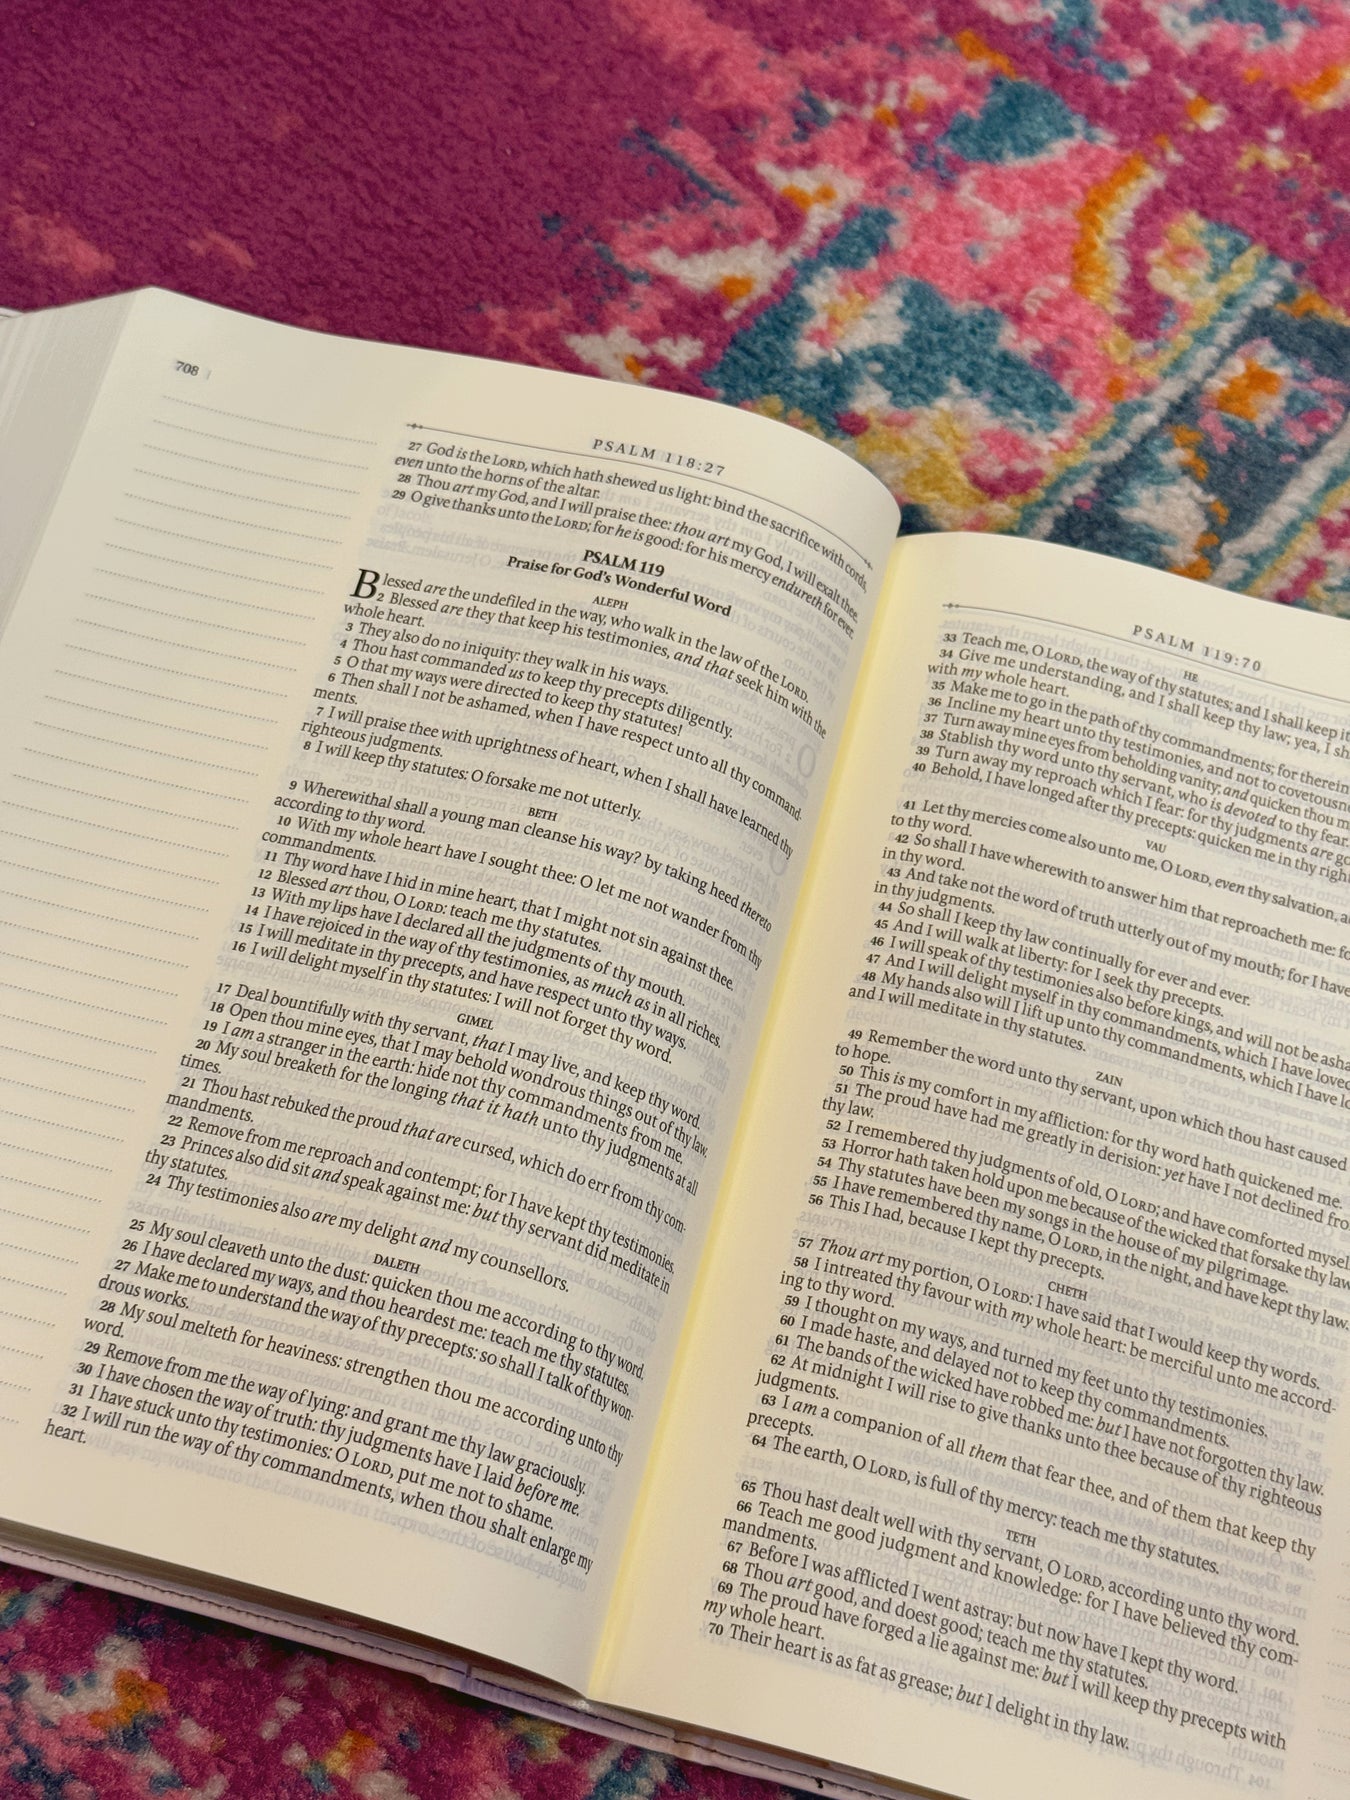 708
PSALM 118:27
27 God is the LORD, which hath shewed us light: bind the sacrifice with cords,
even unto the horns of the altar.
28 Thou art my God, and I will praise thee: thou art my God, I will exalt thee.
29 O give thanks unto the LORD; for he is good: for his mercy endureth for ever.
PSALM 119
Praise for God's Wonderful Word
ALEPH
Blessed are the undefiled in the way, who walk in the law of the LORD.
2 Blessed are they that keep his testimonies, and that seek him with the
whole heart.
3 They also do no iniquity: they walk in his ways.
4 Thou hast commanded us to keep thy precepts diligently.
5 O that my ways were directed to keep thy statutes!
6 Then shall I not be ashamed, when I have respect unto all thy command-
ments.
7 I will praise thee with uprightness of heart, when I shall have learned thy
righteous judgments.
8 I will keep thy statutes: O forsake me not utterly.
BETH
9 Wherewithal shall a young man cleanse his way? by taking heed thereto
according to thy word.
10 With my whole heart have I sought thee: O let me not wander from thy
commandments.
11 Thy word have I hid in mine heart, that I might not sin against thee.
12 Blessed art thou, O LORD: teach me thy statutes.
13 With my lips have I declared all the judgments of thy mouth.
14 I have rejoiced in the way of thy testimonies, as much as in all riches.
15 I will meditate in thy precepts, and have respect unto thy ways.
16 I will delight myself in thy statutes: I will not forget thy word.
GIMEL
17 Deal bountifully with thy servant, that I may live, and keep thy word.
18 Open thou mine eyes, that I may behold wondrous things out of thy law.
19 I am a stranger in the earth: hide not thy commandments from me.
20 My soul breaketh for the longing that it hath unto thy judgments at all
times.
21 Thou hast rebuked the proud that are cursed, which do err from thy com-
mandments.
22 Remove from me reproach and contempt; for I have kept thy testimonies.
23 Princes also did sit and speak against me: but thy servant did meditate in
thy statutes.
24 Thy testimonies also are my delight and my counsellors.
DALETH
25 My soul cleaveth unto the dust: quicken thou me according to thy word.
26 I have declared my ways, and thou heardest me: teach me thy statutes.
27 Make me to understand the way of thy precepts: so shall I talk of thy won-
drous works.
28 My soul melteth for heaviness: strengthen thou me according unto thy
word.
29 Remove from me the way of lying: and grant me thy law graciously.
30 I have chosen the way of truth: thy judgments have I laid before me.
31 I have stuck unto thy testimonies: O LORD, put me not to shame.
32 I will run the way of thy commandments, when thou shalt enlarge my
heart.
PSALM 119:70
HE
33 Teach me, O LORD, the way of thy statutes; and I shall keep it
34 Give me understanding, and I shall keep thy law; yea, I sh
with my whole heart.
35 Make me to go in the path of thy commandments; for therein
36 Incline my heart unto thy testimonies, and not to covetousne
37 Turn away mine eyes from beholding vanity; and quicken thou m
38 Stablish thy word unto thy servant, who is devoted to thy fear.
39 Turn away my reproach which I fear: for thy judgments are go
40 Behold, I have longed after thy precepts: quicken me in thy right
VAU
41 Let thy mercies come also unto me, O LORD, even thy salvation, a
to thy word.
42 So shall I have wherewith to answer him that reproacheth me: fo
in thy word.
43 And take not the word of truth utterly out of my mouth; for I have
in thy judgments.
44 So shall I keep thy law continually for ever and ever.
45 And I will walk at liberty: for I seek thy precepts.
46 I will speak of thy testimonies also before kings, and will not be asha
47 And I will delight myself in thy commandments, which I have loved
48 My hands also will I lift up unto thy commandments, which I have lo
and I will meditate in thy statutes.
ZAIN
49 Remember the word unto thy servant, upon which thou hast caused
to hope.
50 This is my comfort in my affliction: for thy word hath quickened me.
51 The proud have had me greatly in derision: yet have I not declined fro
thy law.
52 I remembered thy judgments of old, O LORD; and have comforted mysel
53 Horror hath taken hold upon me because of the wicked that forsake thy law
54 Thy statutes have been my songs in the house of my pilgrimage.
55 I have remembered thy name, O LORD, in the night, and have kept thy law.
56 This I had, because I kept thy precepts.
CHETH
57 Thou art my portion, O LORD: I have said that I would keep thy words.
58 I intreated thy favour with my whole heart: be merciful unto me accord-
ing to thy word.
59 I thought on my ways, and turned my feet unto thy testimonies.
60 I made haste, and delayed not to keep thy commandments.
61 The bands of the wicked have robbed me: but I have not forgotten thy law.
62 At midnight I will rise to give thanks unto thee because of thy righteous
judgments.
63 I am a companion of all them that fear thee, and of them that keep thy
precepts.
64 The earth, O LORD, is full of thy mercy: teach me thy statutes.
TETH
65 Thou hast dealt well with thy servant, O LORD, according unto thy word.
66 Teach me good judgment and knowledge: for I have believed thy com-
mandments.
67 Before I was afflicted I went astray: but now have I kept thy word.
68 Thou art good, and doest good; teach me thy statutes.
69 The proud have forged a lie against me: but I will keep thy precepts with
my whole heart.
70 Their heart is as fat as grease; but I delight in thy law.